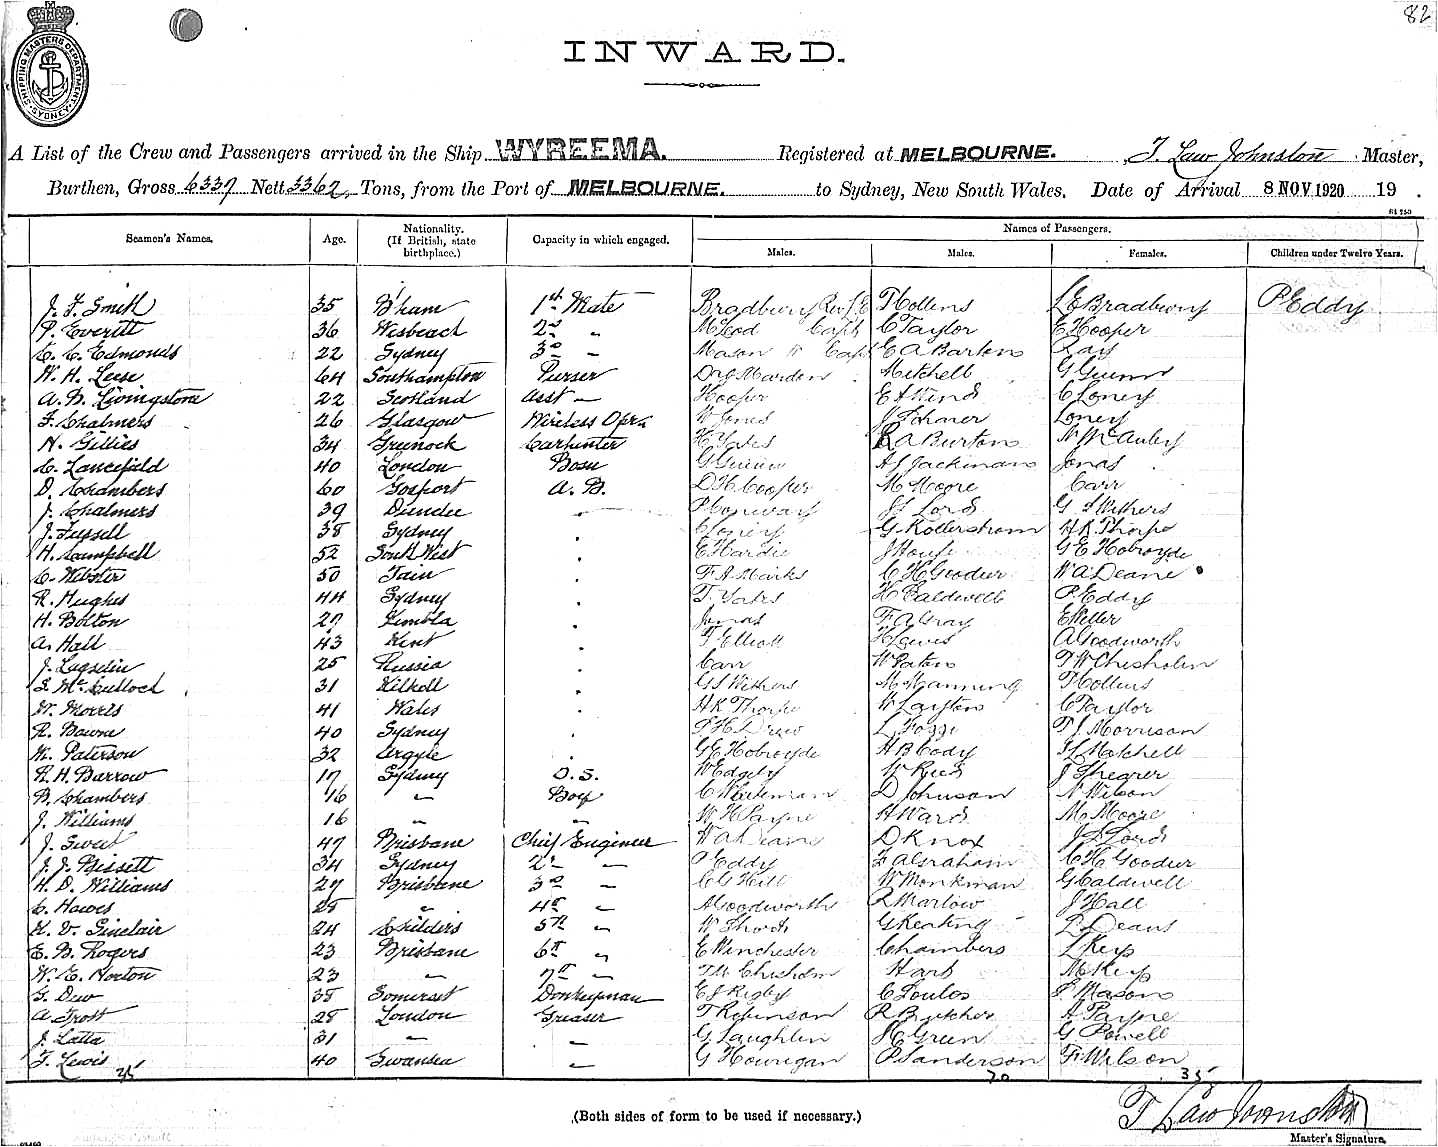 82
SHIPPING MASTERS DEPARTMENT SYDNEY
INWARD.
A List of the Crew and Passengers arrived in the Ship WYREEMA. Registered at MELBOURNE. T. Law Johnston Master,
Burthen, Gross 6339 Nett 3362 Tons, from the Port of MELBOURNE. to Sydney, New South Wales. Date of Arrival 8 NOV 1920 19 .
Seamen's Names. Age. Nationality. (If British, state birthplace.) Capacity in which engaged. Names of Passengers.
Males. Males. Females. Children under Twelve Years.
J. F. Smith 35 B'ham 1st Mate Bradbury Rev J. E T Collins L E Bradbury P. Eddy
P. Everitt 36 Wisbeach 2nd " McLeod Capt C Taylor C Hooper
C. C. Edmonds 22 Sydney 3rd " Mason W Capt E A Bartons Ray
W. H. Leese 64 Southampton Purser Marden Mitchell G Gunn
A. D. Livingstone 22 Scotland Asst " Hooper E A Wind C Loney
F. Chalmers 26 Glasgow Wireless Opr. W Jones J Scharer Loney
N. Gillies 34 Greenock Carpenter H Yates R A Burtons N McAuley
C. Lancefield 40 London Bosn G Gunn A J Jackmans Jonas
D. Chambers 60 Gosport A. B. D H Cooper M Moore Carr
J. Chalmers 39 Dundee P Conway J J Lord G S Withers
J. Fussell 38 Sydney C Loney G Kollerstrom H K Thorpe
H. Campbell 52 South West E Hardie J House G E Hobroyde
C. Webster 50 Tain F A Marks C H Goodier W A Deane
R. Hughes 44 Sydney T. Yates H Caldwell P. Eddy
H. Bolton 27 Kimbla Jonas F A Gray E Weller
A. Hall 43 Kent T Elliott H Lewis A Goodworth
J. 25 Russia Carr W Paton T W Chisholm
S. McCulloch 31 Kilkell G S Withers M Manning T Collins
W. Morris 41 Wales H K Thorpe W Layton C Taylor
R. Bawne 40 Sydney P H Drew L Foggs T J Morrison
W. Paterson 32 Argyle G E Hobroyde H B Cody H Mitchell
R. H. Barrow 17 Sydney O. S. W Edgely W Rees J Shearer
B. Chambers 16 " Boy C Whiteman D Johnson N Wilson
J. Williams 16 " " W H Payne H Ward M Moore
J. Sweet 47 Brisbane Chief Engineer W A Deane D Knox J J Lord
J. J. Bissett 34 Sydney 2nd " P Eddy F A Graham C H Goodier
H. D. Williams 27 Brisbane 3rd " C G Hill W Monkman G Caldwell
C. Hawes 25 " 4th " A Goodworth R Marlow J Hall
K. V. Sinclair 24 Childers 5th " W Short G Keating L Deans
E. B. Rogers 23 Brisbane 6th " E Winchester Chambers L Keys
W. E. Horton 23 " 7th " T W Chisholm Hart M Keys
G. Dew 38 Somerset Donkeyman E J Rigby C Poulos S Mason
A. Trott 28 London Greaser T Robinson R Butcher A Payne
J. Latta 31 " " G Laughlin H Green G Powell
T. Lewis 40 Swansea " G Hourigan P Sanderson F Wilson
35 70 35
(Both sides of form to be used if necessary.)
T Law Johnston
Master's Signature.